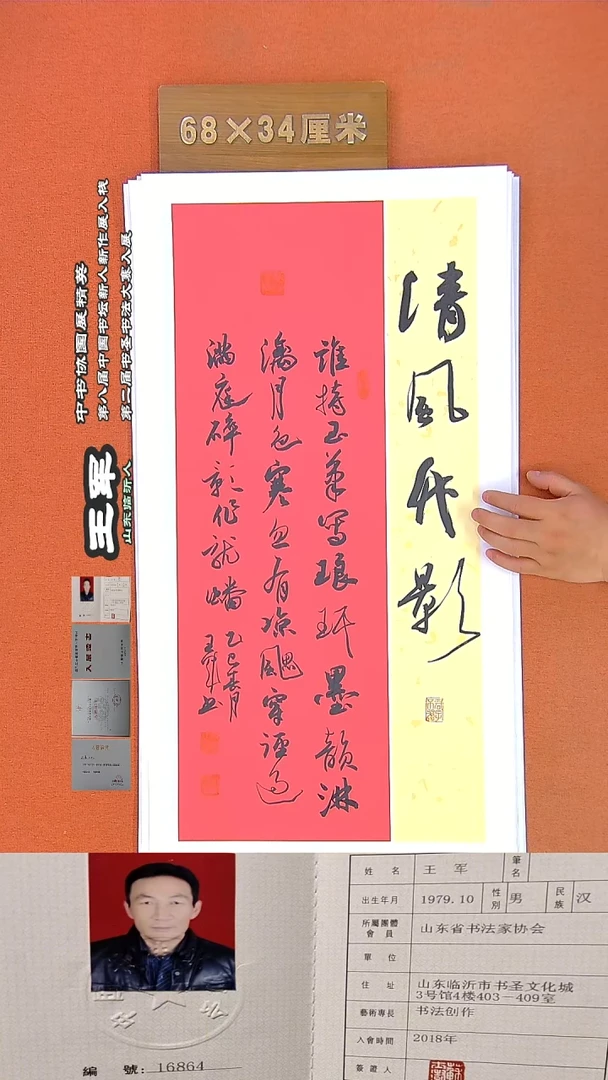 68×34厘米
中书协国展精英
第八届中国书坛新人新作展入展
第二届书圣书法大赛入展
王军
山东临沂人
清风竹影
谁持玉笔写琅玕墨韵淋
漓月色寒忽有凉飔穿径过
满庭碎影作龙蟠
乙巳春月
王军书
姓名 王军 筆名
出生年月 1979.10 性別 男 民族 汉
所屬團體會員 山东省书法家协会
單位
住址 山东临沂市书圣文化城3号馆4楼403-409室
藝術專長 书法创作
入會時間 2018年
簽證人
編號:16864